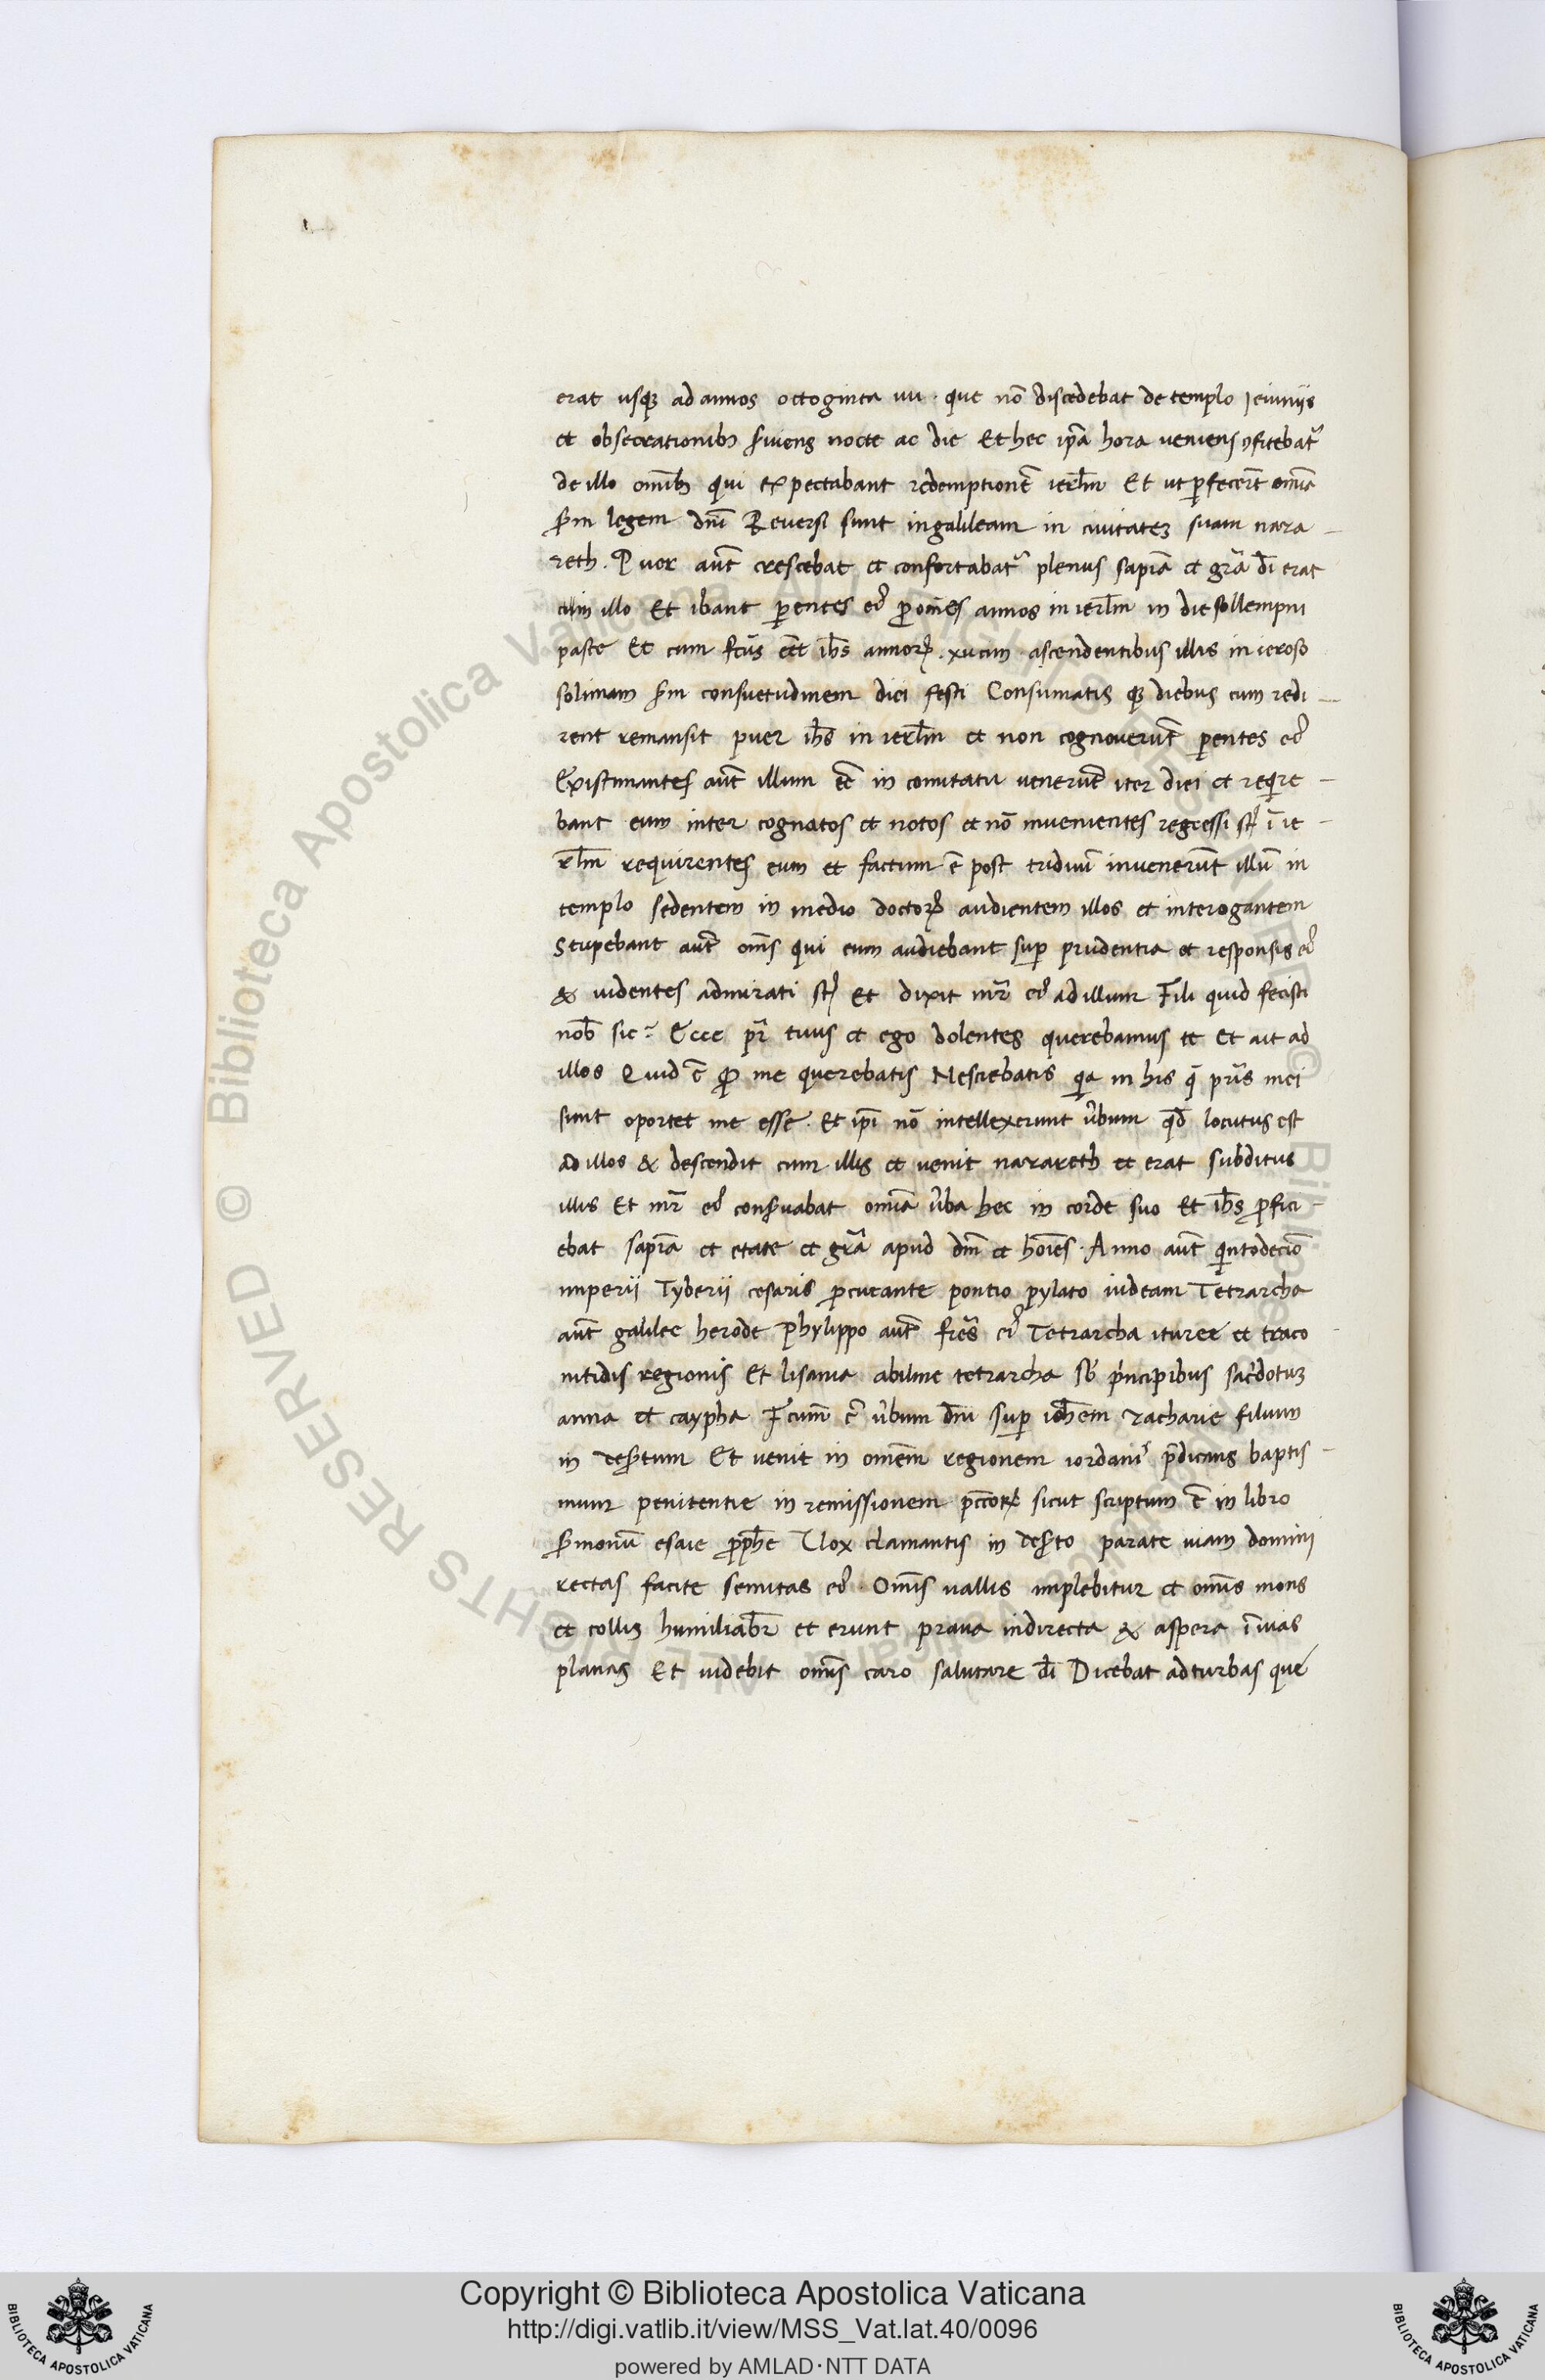 erat usqꝫ ad annos octoginta uii · que nō discedebat de templo Ieiuniis
et obsecrationibꝫ s̄uiens nocte ac die Et hec ip̄a hora veniens ꝯfitebat᷑
de illo omībꝫ qui expectabant redemptionē ierl̄m Et ut ꝑfecerūt omīa
s̄m legem dn̄i Reversi sunt in galileam in civitateꝫ suam naza
reth. Puer aūt crescebat et confortabat᷑ plenus sapīa et grā dī erat
cum illo Et ibant ꝑentes eꝰ ꝑ omēs annos in ierl̄m in die sollempni
pasce Et cum fc̄us eēt ih̄s annoꝝ. xii cum ascendentibus illis in ieroso
solimam s̄m consuetudinem diei festi Consumatis qꝫ diebus cum redi
rent remansit puer ih̄s in ierl̄m et non cognoverūt ꝑentes eꝰ
Existimantes aūt illum eē in comitatu venerūt iter diei et reqͥre
bant eum inter cognatos et notos et nō invenientes regressi st̄ ī ie
rl̄m requirentes eum et factum ē post triduū invenerūt illū in
templo sedentem in medio doctoꝝ audientem illos et interogantem
Stupebant aūt om̄s qui eum audiebant suꝑ prudentia et responsis eꝰ
& uidentes admirati st̄ Et dixit mr̄ eꝰ ad illum Fili quid fecisti
nob̄ sic? Ecce pr̄ tuus et ego dolentes querebamus te Et ait ad
illos Quid ē ꝙ me querebatis Nesciebatis qͥa in his q̄ pr̄is mei
sunt oportet me esse. Et ip̄i nō intellexerunt v̄bum qd̄ locutus est
ad illos & descendit cum illis et venit nazareth et erat subditus
illis Et mr̄ eꝰ cons̄vabat omīa v̄ba hec in corde suo Et ih̄s ꝓfici
ebat sapīa et etate et grā apud dm̄ et hoīes. Anno aūt qͥntodecīo
imperii Tyberii cesaris ꝓcurante pontio pylato iudeam Tetrarcha
aūt galilee herode Phylippo aūt frē eꝰ Tetrarcha ituree et traco
nitidis regionis Et lisania abiline tetrarcha sb̄ pͥncipibus sac̄dotuꝫ
anna et caypha Fc̄um ē v̄bum dn̄i suꝑ ioh̄em zacharie filium
in des̄tum Et venit in omēm regionem iordanis p̄dicans baptis
mum penitentie in remissionem pcc̄oꝝ sicut scriptum ē in libro
s̄monū esaie ꝓph̄e Vox clamantis in des̄to parate viam domini
rectas facite semitas eꝰ. Om̄is vallis implebitur et om̄is mons
et collis humiliab̄r et erunt prava in directa & aspera ī vias
planas Et videbit om̄is caro salutare dī Dicebat ad turbas que
Copyright © Biblioteca Apostolica Vaticana
http://digi.vatlib.it/view/MSS_Vat.lat.40/0096
powered by AMLAD·NTT DATA